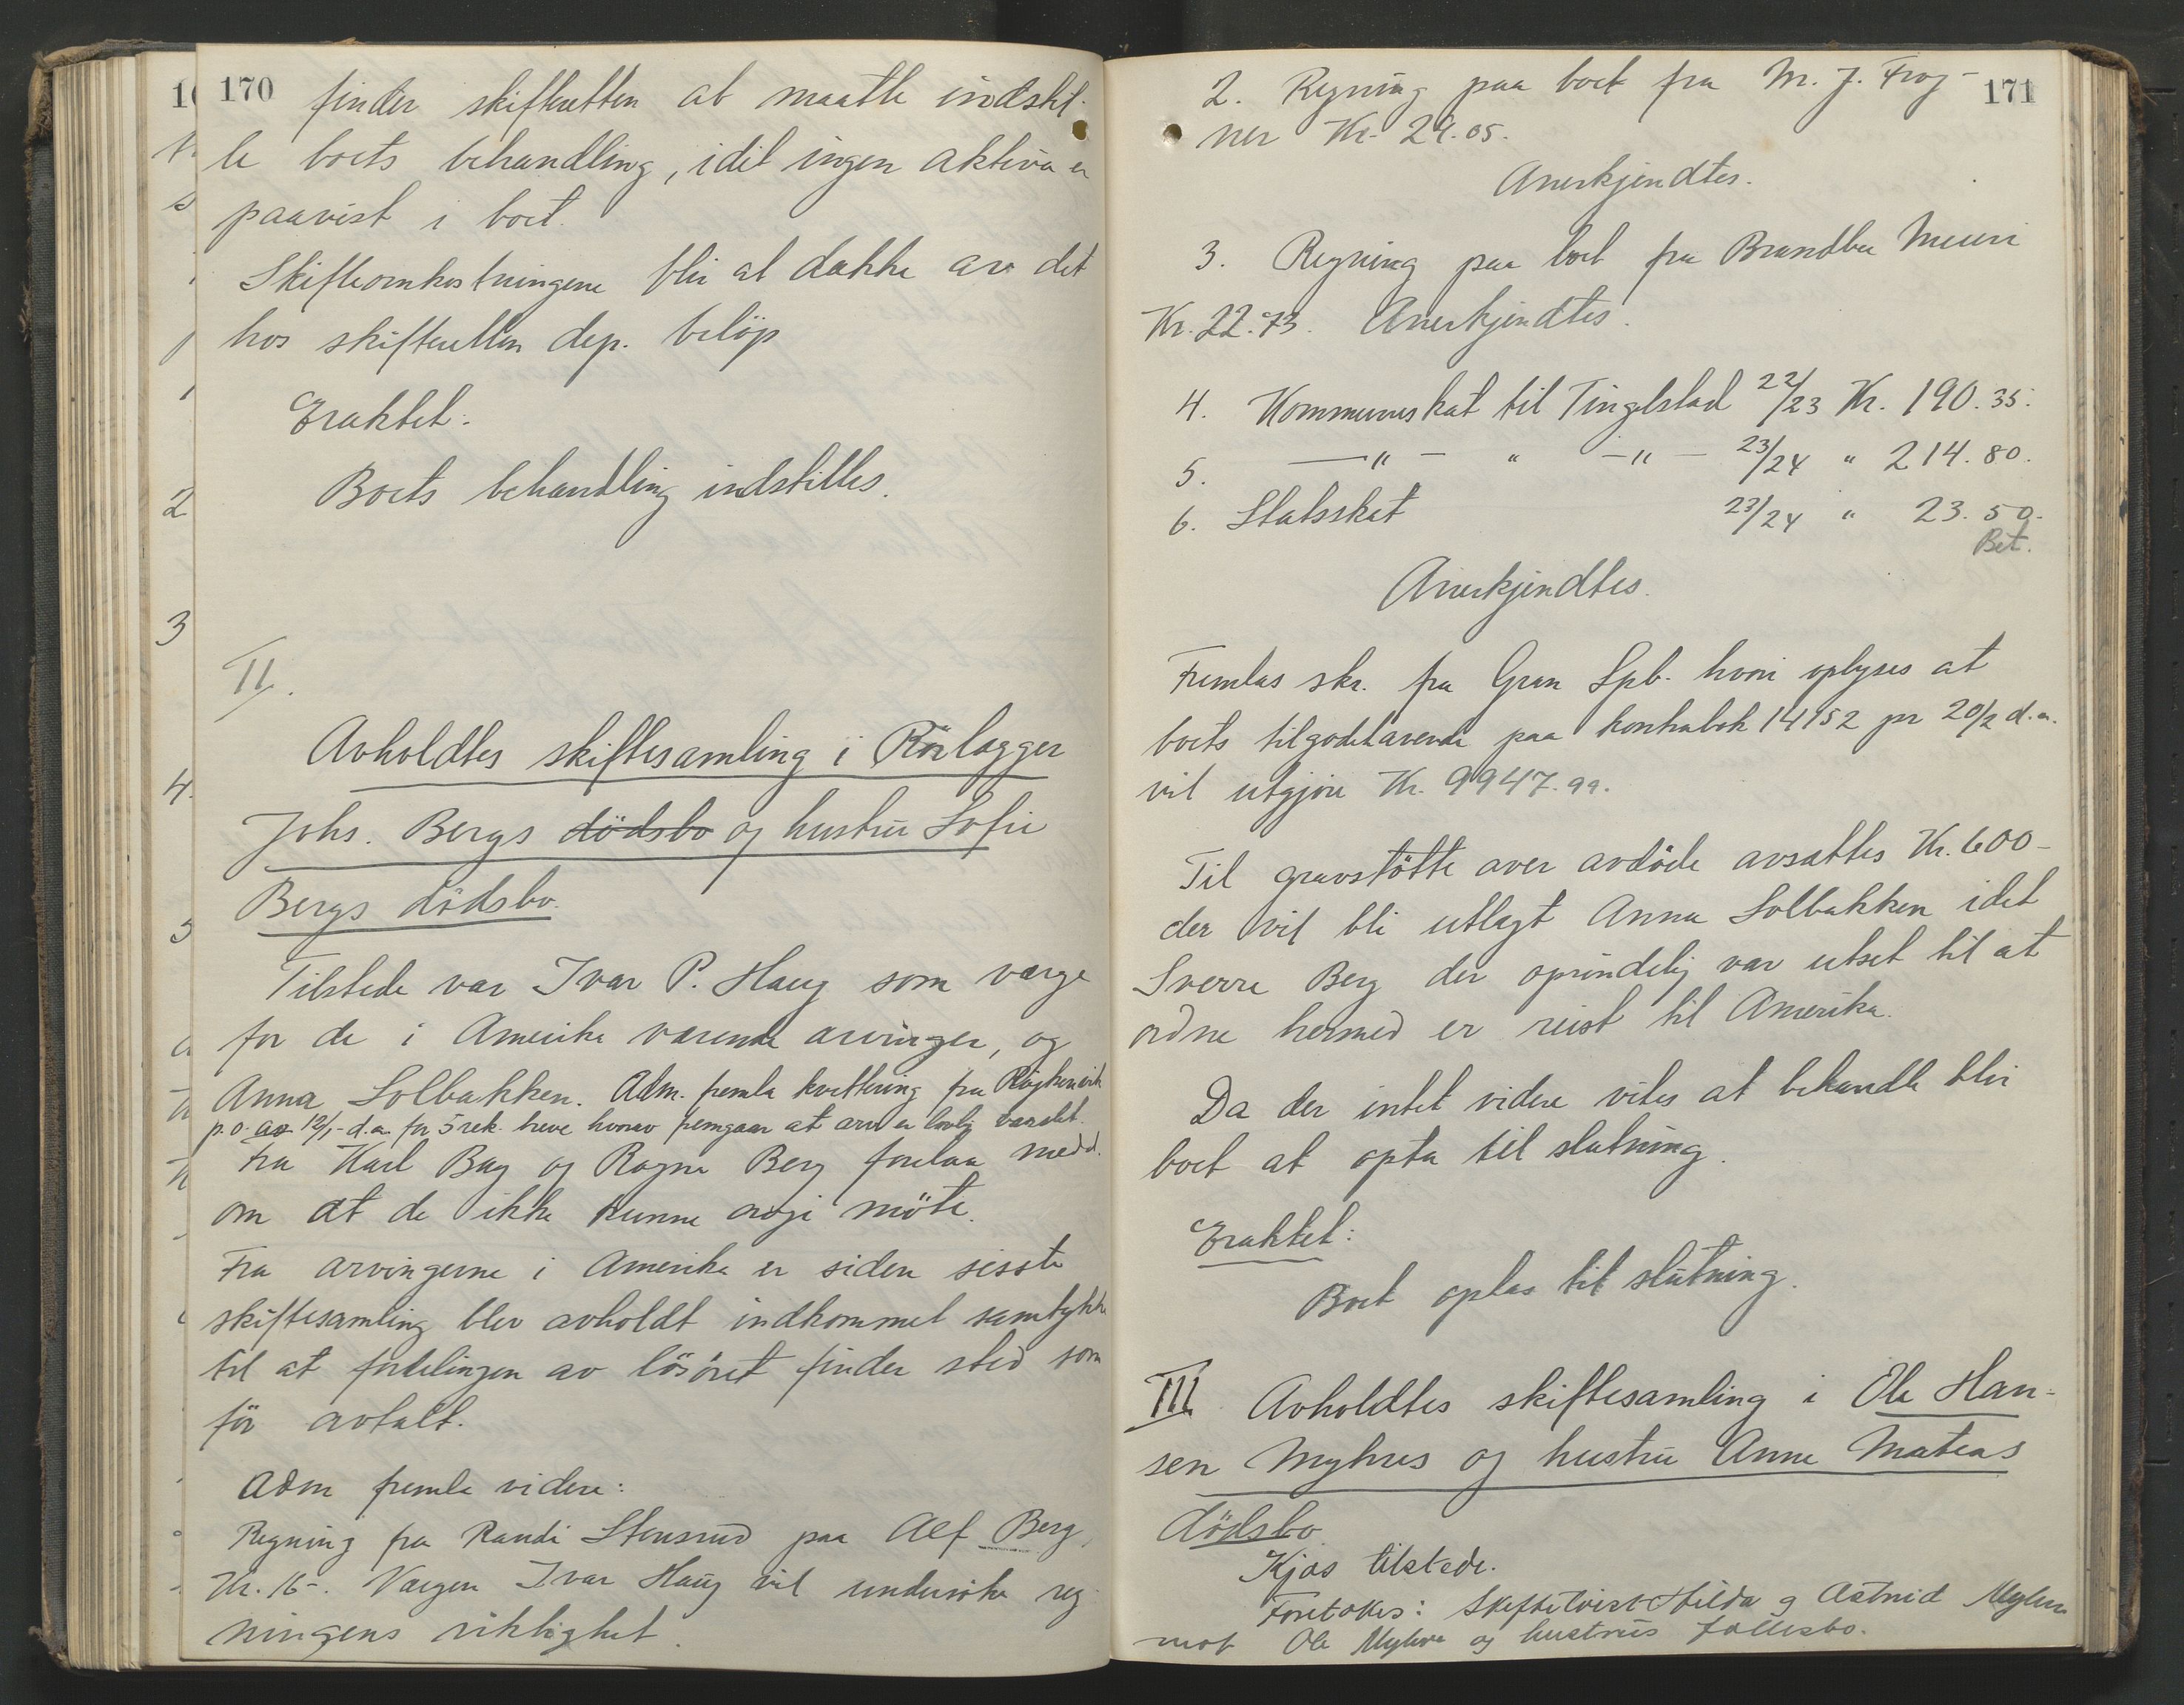 170
finder skifteretten at maatte indstil-
le boets behandling, idet ingen aktiva er
paavist i boet.
Skifteomkostningene blir at dække av det
hos skifteretten dep. beløp
Eraktet:
Boets behandling indstilles.
II.
Avholdtes skiftesamling i Rørlægger
Johs. Bergs dödsbo og hustru Sofie
Bergs dödsbo.
Tilstede var Ivar P. Haug som værge
for de i Amerika værende arvinger, og
Anna Solbakken. Adm. fremla kvittering fra Röykenvik
p.o. av 12/1- d.a. for 5 rek. breve hvorav fremgaar at arv er lovlig varslet.
Fra Karl Berg og Ragna Berg forelaa medd.
om at de ikke kunne avgi möte.
Fra arvingerne i Amerika er siden sisste
skiftesamling blev avholdt indkommet samtykke
til at fordelingen av lösöret finder sted som
för avtalt.
Adm fremla videre:
Regning fra Randi Stensrud paa Alf Berg,
Kr. 16-. Værgen Ivar Haug vil undersöke reg-
ningens riktighet.
171
2. Regning paa boet fra M. J. Frog-
ner Kr. 29.05.
Anerkjendtes.
3. Regning paa boet fra Brandbu Meieri
Kr. 22.73. Anerkjendtes.
4. Kommuneskat til Tingelstad 22/23 Kr. 190.35.
5. —"— " —"— 23/24 " 214.80.
6. Statsskat 23/24 " 23.50.
Bet.
Anerkjendtes.
Fremlas skr. fra Gran Spb. hvori oplyses at
boets tilgodehavende paa kontrabok 14152 pr 20/2 d.a.
vil utgjøre Kr. 9947.99.
Til gravstötte over avdöde avsattes Kr. 600-
der vil bli utlagt Anna Solbakken idet
Sverre Berg der oprindelig var utset til at
ordne hermed er reist til Amerika.
Da der intet videre vites at behandle blir
boet at opta til slutning.
Eraktet:
Boet optas til slutning.
III Avholdtes skiftesamling i Ole Han-
sen Myhres og hustru Anne Mateas
dödsbo.
Kjos tilstede.
Foretokes: Skiftetvist Hilda og Astrid Myhre
mot Ole Myhre og hustrus fællesbo.